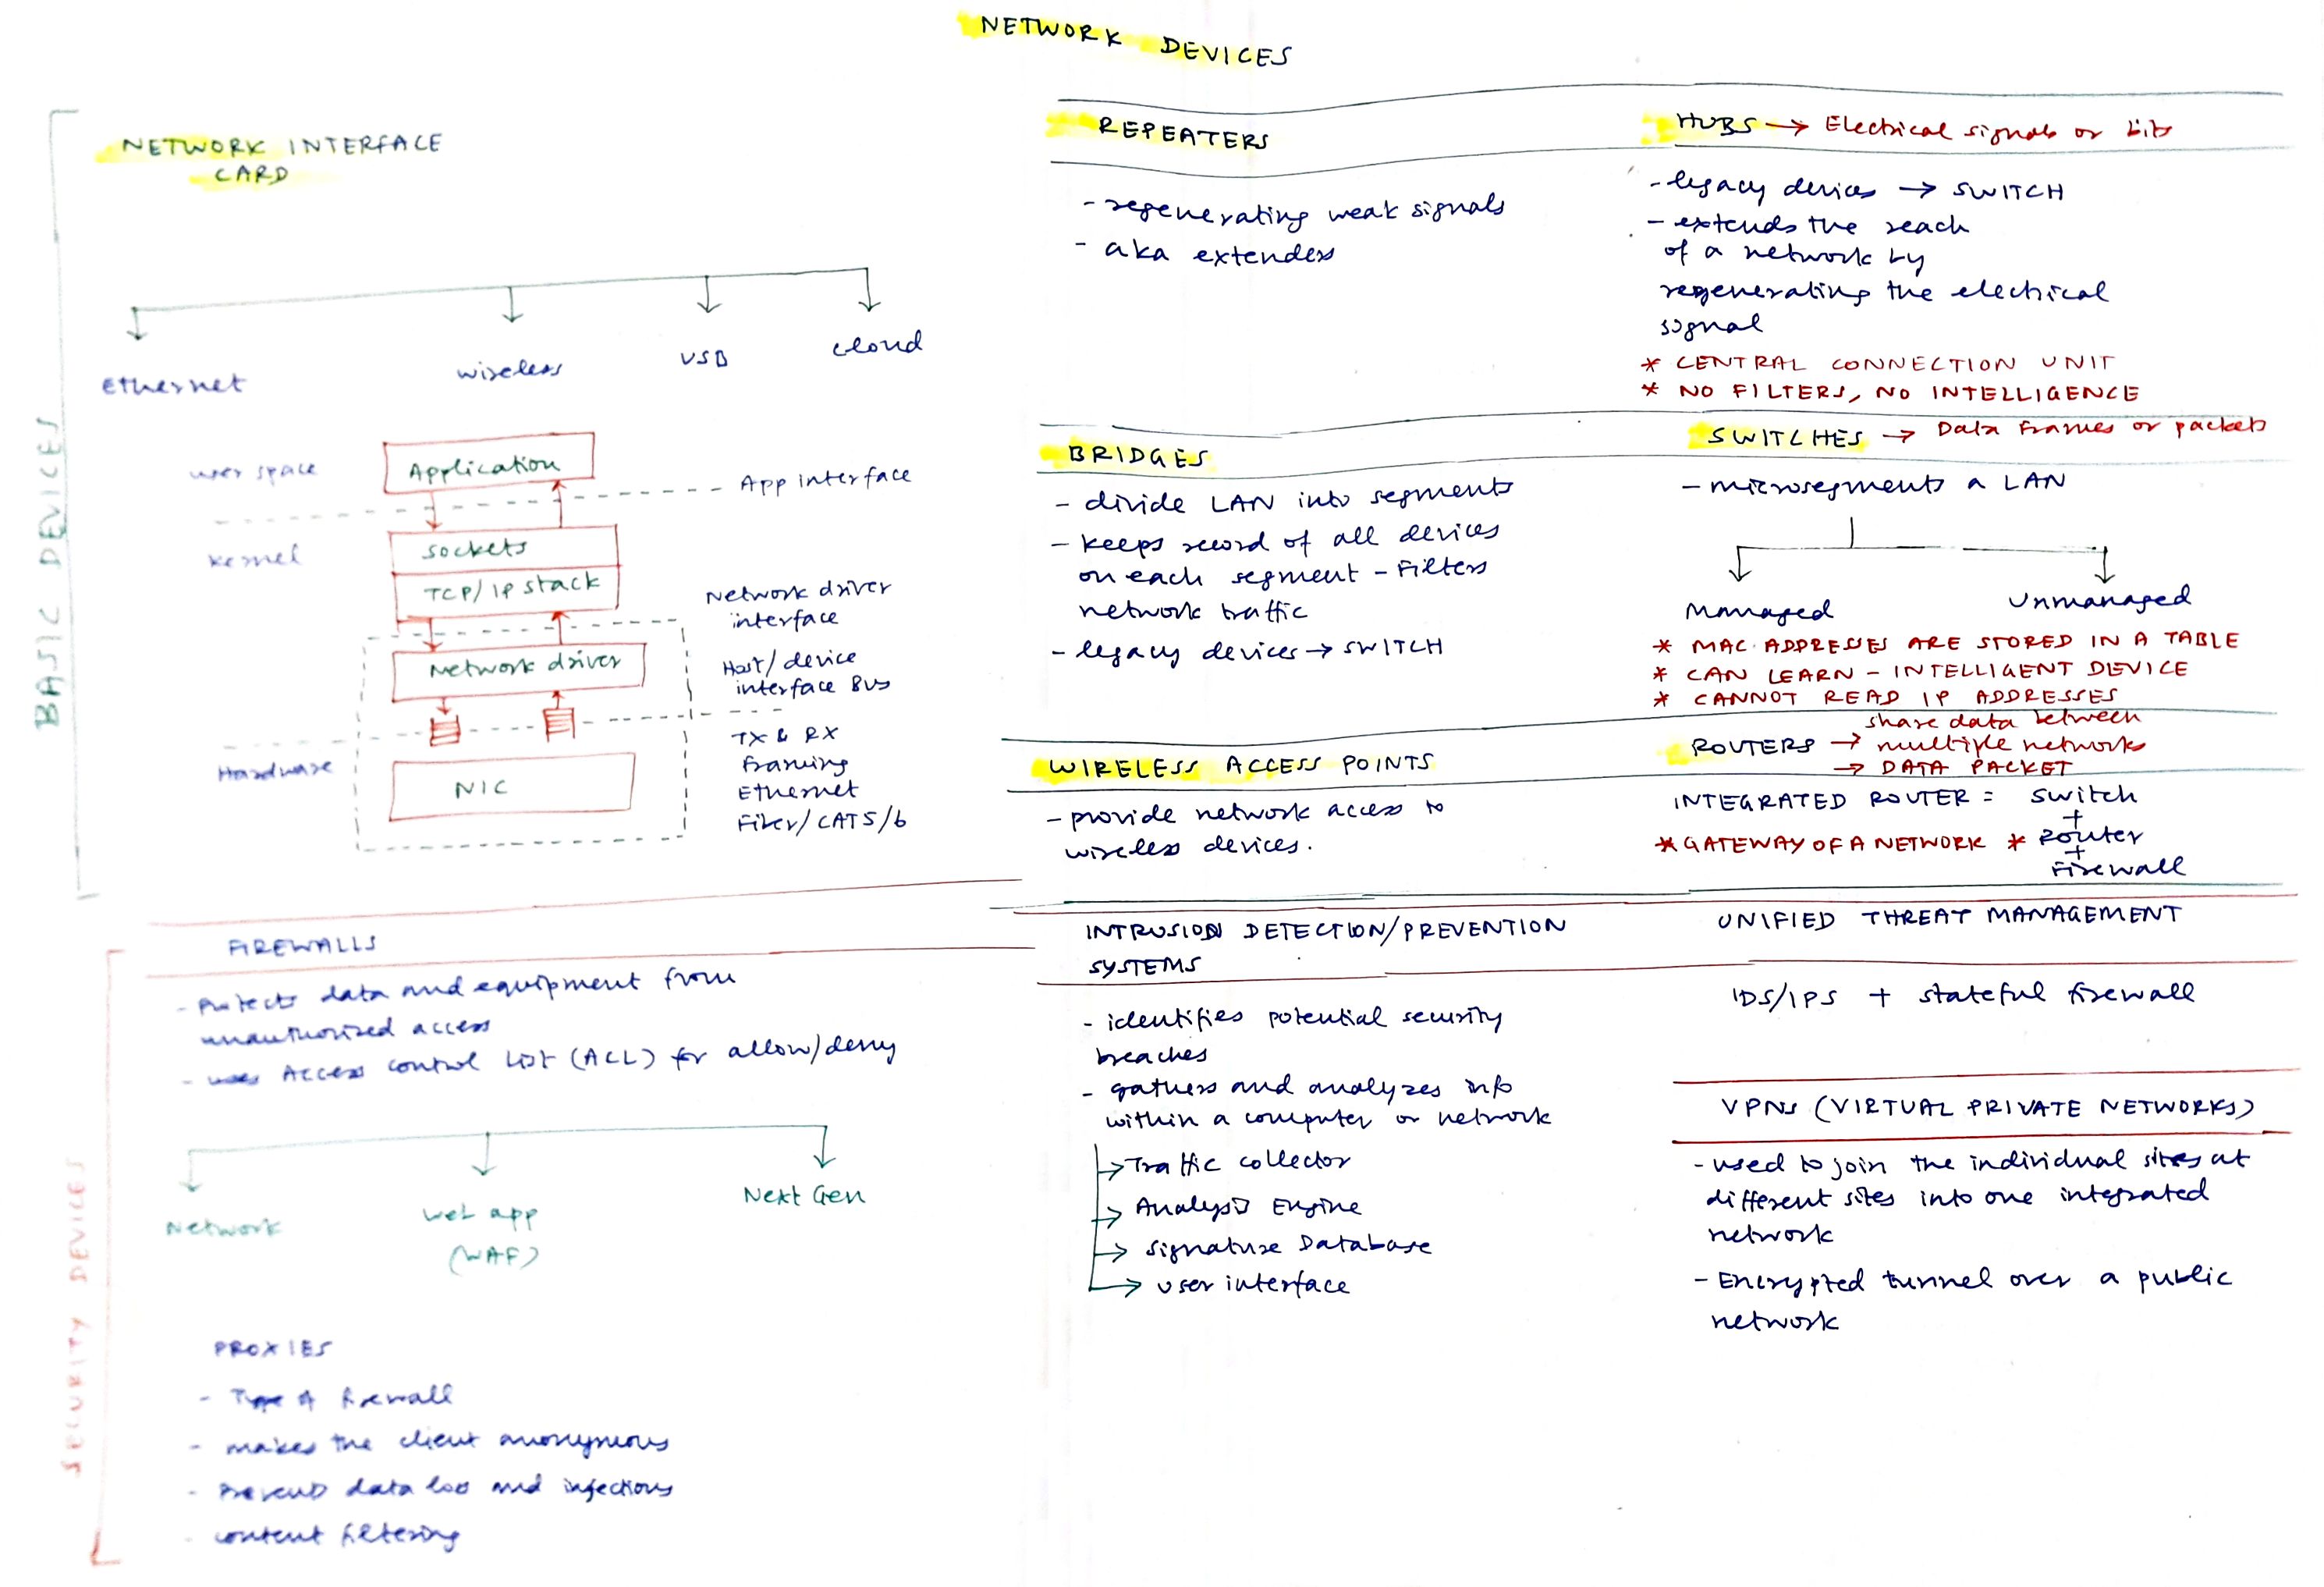 NETWORK DEVICES
BASIC DEVICES
NETWORK INTERFACE
CARD
Ethernet
wireless
USB
cloud
user space
Application
App interface
kernel
sockets
TCP/IP stack
Network driver
interface
Network driver
Host/device
interface Bus
Hardware
NIC
TX & RX
Framing
Ethernet
Fiber/CAT5/6
REPEATERS
- regenerating weak signals
- aka extenders
HUBS → Electrical signals or bits
- legacy devices → SWITCH
- extends the reach
of a network by
regenerating the electrical
signal
* CENTRAL CONNECTION UNIT
* NO FILTERS, NO INTELLIGENCE
BRIDGES
- divide LAN into segments
- keeps record of all devices
on each segment - Filters
network traffic
- legacy devices → SWITCH
SWITCHES → Data frames or packets
- microsegments a LAN
Managed
Unmanaged
* MAC ADDRESSES ARE STORED IN A TABLE
* CAN LEARN - INTELLIGENT DEVICE
* CANNOT READ IP ADDRESSES
WIRELESS ACCESS POINTS
- provide network access to
wireless devices.
ROUTERS → share data between
multiple network
→ DATA PACKET
INTEGRATED ROUTER = switch
+
* GATEWAY OF A NETWORK * Router
+
Firewall
SECURITY DEVICES
FIREWALLS
- Protects data and equipment from
unauthorized access
- uses Access control List (ACL) for allow/deny
Network
web app
(WAF)
Next Gen
PROXIES
- Type A firewall
- makes the client anonymous
- Prevents data loss and infections
- content filtering
INTRUSION DETECTION/PREVENTION
SYSTEMS
- identifies potential security
breaches
- gathers and analyzes info
within a computer or network
→ Traffic collector
→ Analysis Engine
→ Signature Database
→ user interface
UNIFIED THREAT MANAGEMENT
IDS/IPS + stateful firewall
VPNS (VIRTUAL PRIVATE NETWORKS)
- used to join the individual sites at
different sites into one integrated
network
- Encrypted tunnel over a public
network